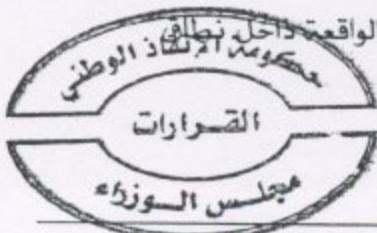 الواقعة داخل نطاق
حكومة الإنقاذ الوطني
القرارات
مجلس الوزراء